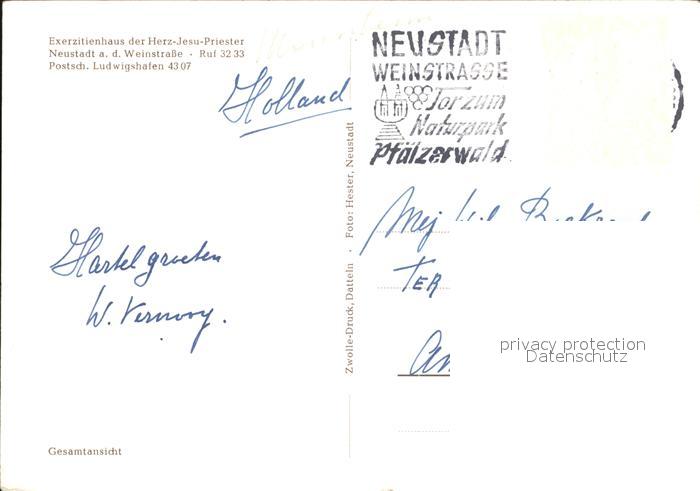 Exerzitienhaus der Herz-Jesu-Priester
Neustadt a. d. Weinstraße · Ruf 32 33
Postsch. Ludwigshafen 43 07
Holland
Hartel groeten
W. Vernooy.
Gesamtansicht
Zwolle-Druck, Datteln · Foto: Hester, Neustadt
NEUSTADT
WEINSTRASSE
Tor zum
Naturpark
Pfälzerwald
Mej
TER
An
privacy protection
Datenschutz